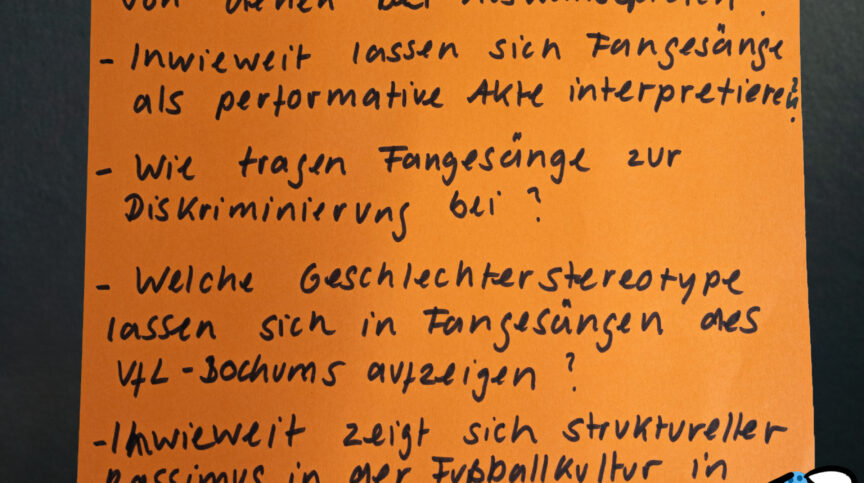 von denen bei
- Inwieweit lassen sich Fangesänge
als performative Akte interpretieren?
- Wie tragen Fangesänge zur
Diskriminierung bei ?
- Welche Geschlechterstereotype
lassen sich in Fangesängen des
VfL-Bochums aufzeigen ?
- Inwieweit zeigt sich struktureller
Rassimus in der Fußballkultur in